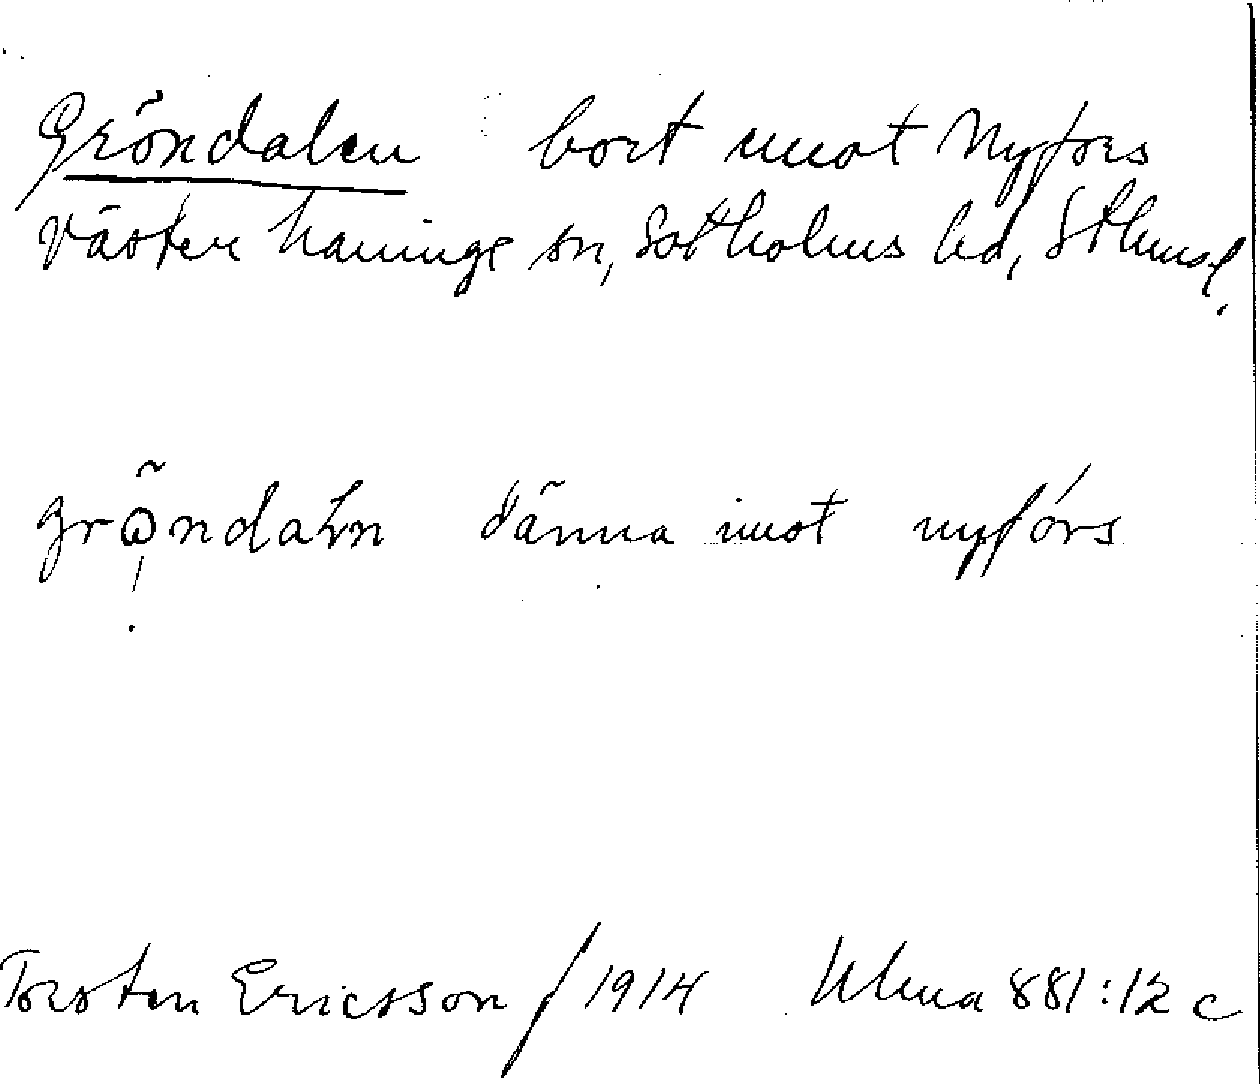 Gröndalen bort emot Nyfors
Västerhaninge sn, Sotholms hd, Sthms l.
grǫndaɫn dänna imot nyfórs
Torsten Ericsson / 1914 Ulma 881:12 c